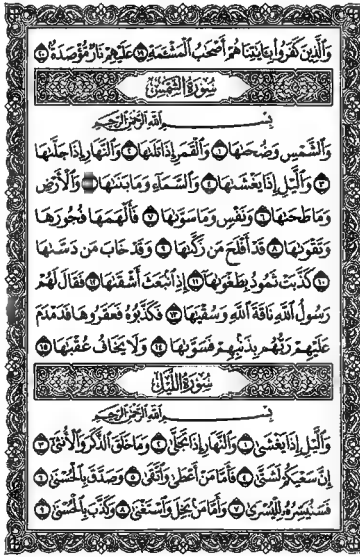 وَالَّذِينَ كَفَرُوا بِآيَاتِنَا هُمْ أَصْحَابُ الْمَشْأَمَةِ ١٩ عَلَيْهِمْ نَارٌ مُؤْصَدَةٌ ٢٠
سُورَةُ الشَّمْسِ
بِسْمِ اللَّهِ الرَّحْمَٰنِ الرَّحِيمِ
وَالشَّمْسِ وَضُحَاهَا ١ وَالْقَمَرِ إِذَا تَلَاهَا ٢ وَالنَّهَارِ إِذَا جَلَّاهَا
٣ وَاللَّيْلِ إِذَا يَغْشَاهَا ٤ وَالسَّمَاءِ وَمَا بَنَاهَا ٥ وَالْأَرْضِ
وَمَا طَحَاهَا ٦ وَنَفْسٍ وَمَا سَوَّاهَا ٧ فَأَلْهَمَهَا فُجُورَهَا
وَتَقْوَاهَا ٨ قَدْ أَفْلَحَ مَنْ زَكَّاهَا ٩ وَقَدْ خَابَ مَنْ دَسَّاهَا
١٠ كَذَّبَتْ ثَمُودُ بِطَغْوَاهَا ١١ إِذِ انْبَعَثَ أَشْقَاهَا ١٢ فَقَالَ لَهُمْ
رَسُولُ اللَّهِ نَاقَةَ اللَّهِ وَسُقْيَاهَا ١٣ فَكَذَّبُوهُ فَعَقَرُوهَا فَدَمْدَمَ
عَلَيْهِمْ رَبُّهُمْ بِذَنْبِهِمْ فَسَوَّاهَا ١٤ وَلَا يَخَافُ عُقْبَاهَا ١٥
سُورَةُ اللَّيْلِ
بِسْمِ اللَّهِ الرَّحْمَٰنِ الرَّحِيمِ
وَاللَّيْلِ إِذَا يَغْشَىٰ ١ وَالنَّهَارِ إِذَا تَجَلَّىٰ ٢ وَمَا خَلَقَ الذَّكَرَ وَالْأُنْثَىٰ ٣
إِنَّ سَعْيَكُمْ لَشَتَّىٰ ٤ فَأَمَّا مَنْ أَعْطَىٰ وَاتَّقَىٰ ٥ وَصَدَّقَ بِالْحُسْنَىٰ ٦
فَسَنُيَسِّرُهُ لِلْيُسْرَىٰ ٧ وَأَمَّا مَنْ بَخِلَ وَاسْتَغْنَىٰ ٨ وَكَذَّبَ بِالْحُسْنَىٰ ٩